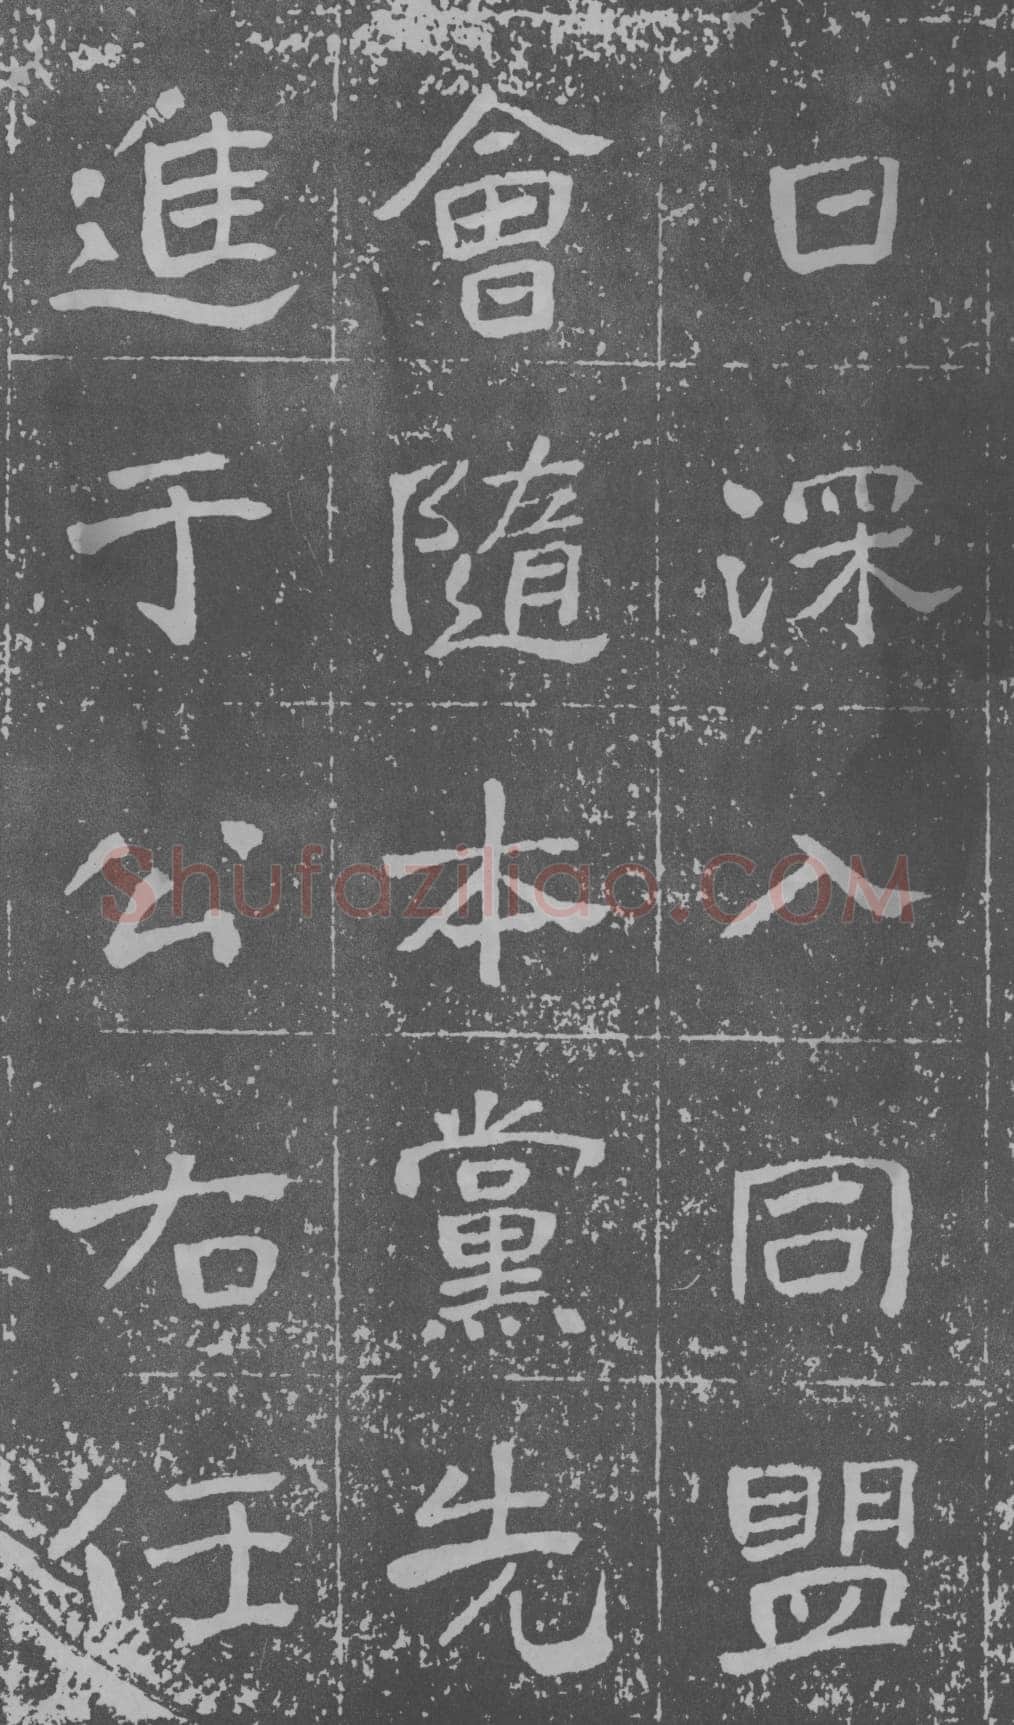 日深入同盟
會隨本黨先
進于公右任
Shufaziliao.COM